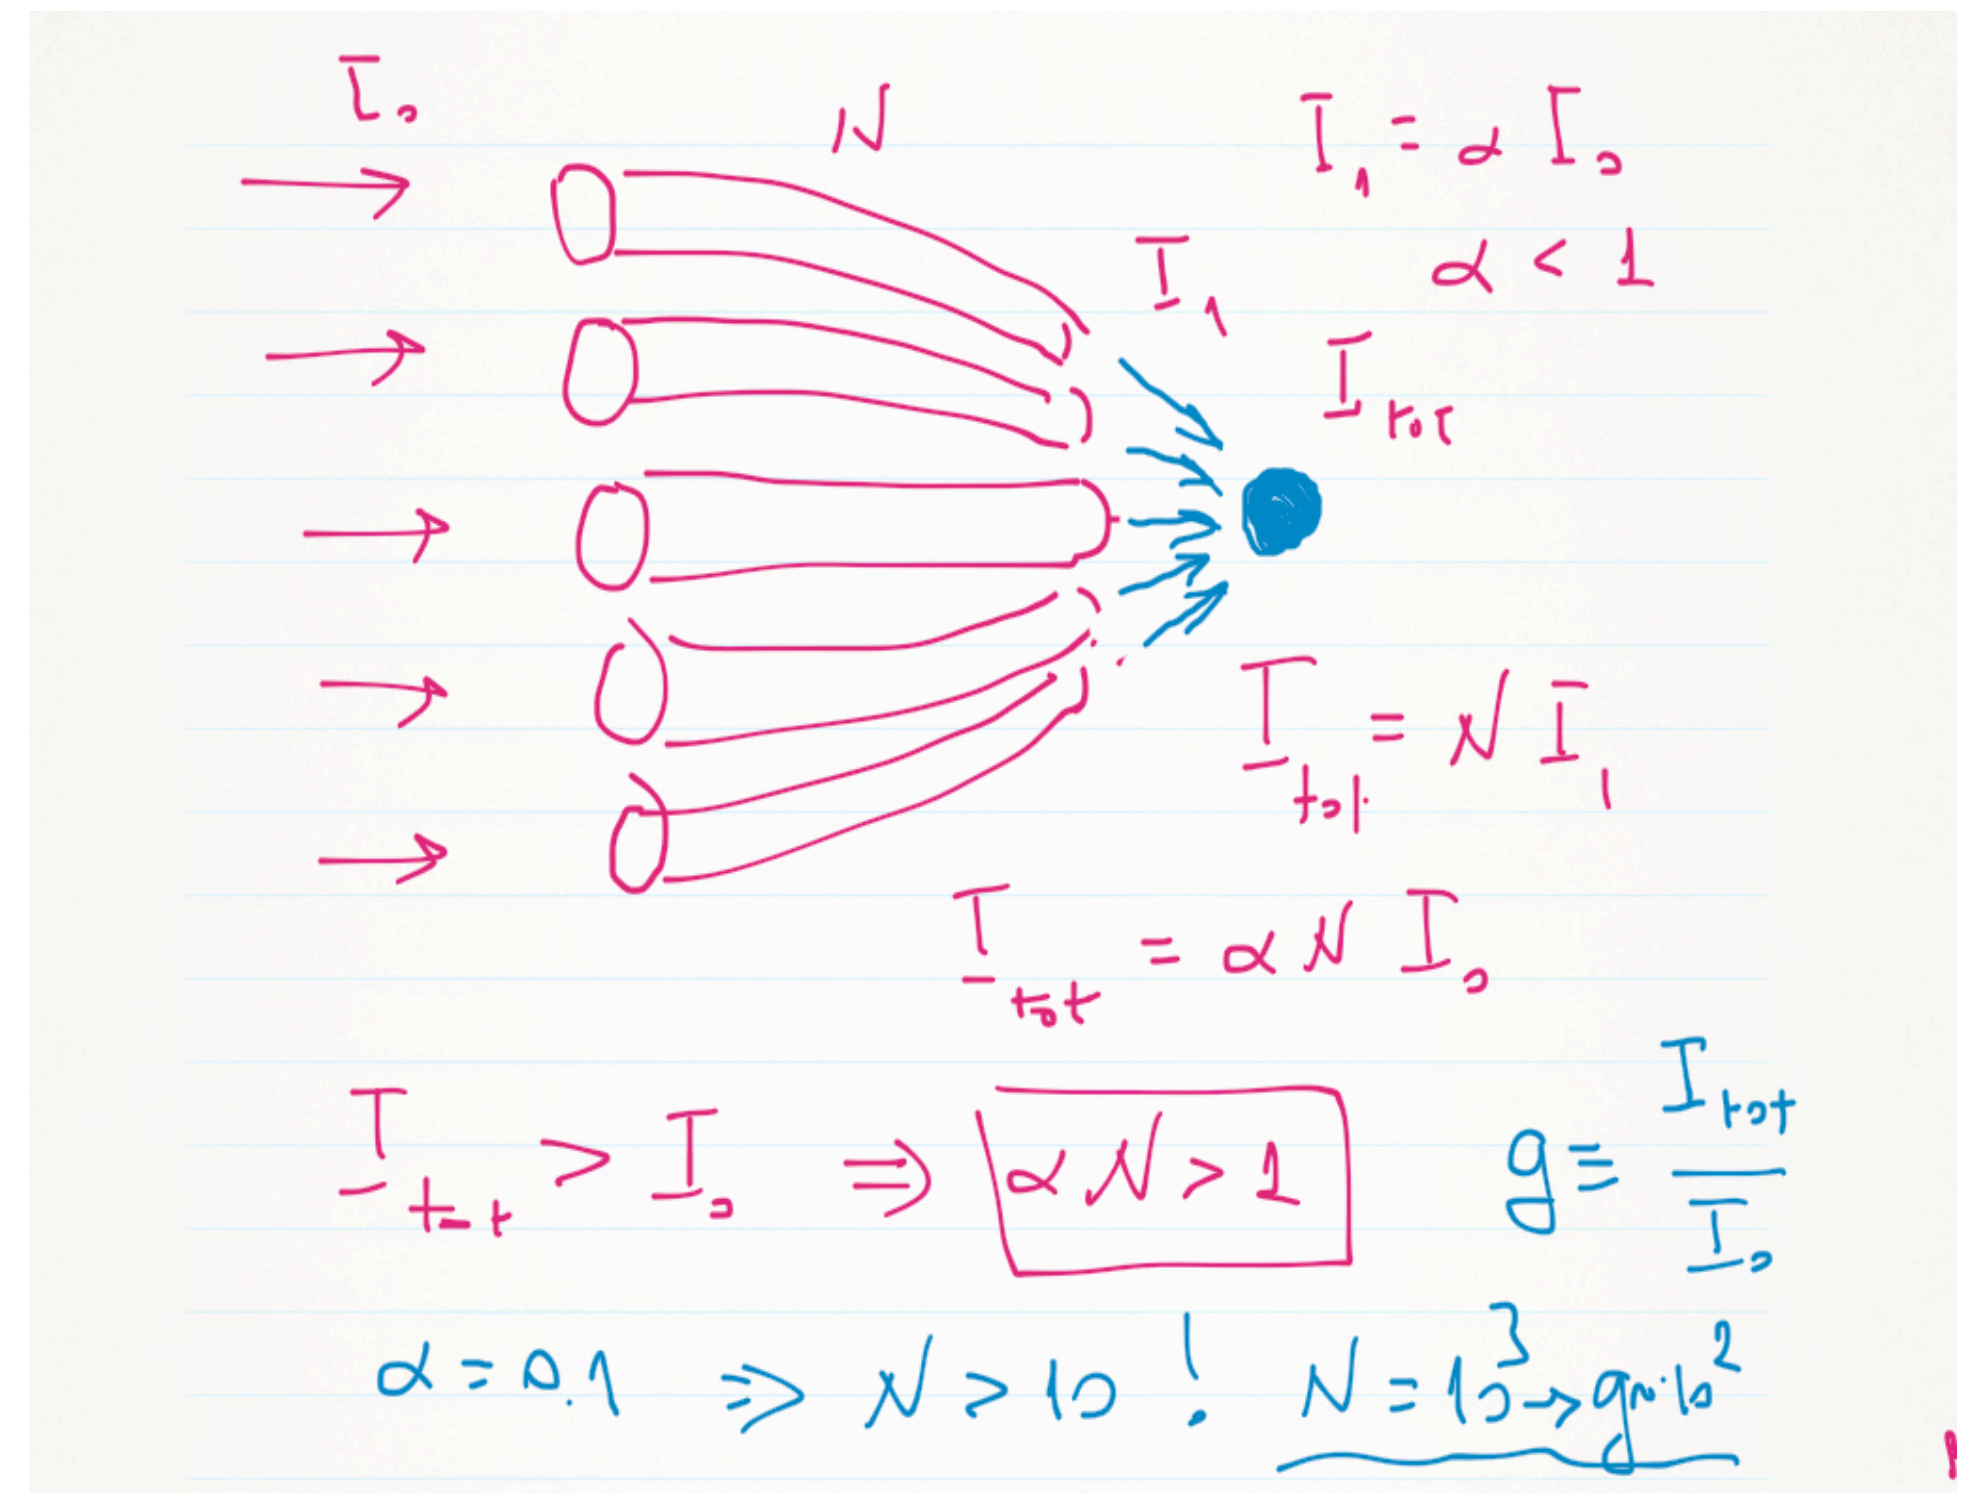 I₀
N
I₁ = α I₀
α < 1
I₁
I tot
I tot = N I₁
I tot = α N I₀
I tot > I₀ ⇒ α N > 1
g ≡ I tot / I₀
α = 0.1 ⇒ N > 10 !
N = 10³ → g ~ 10²